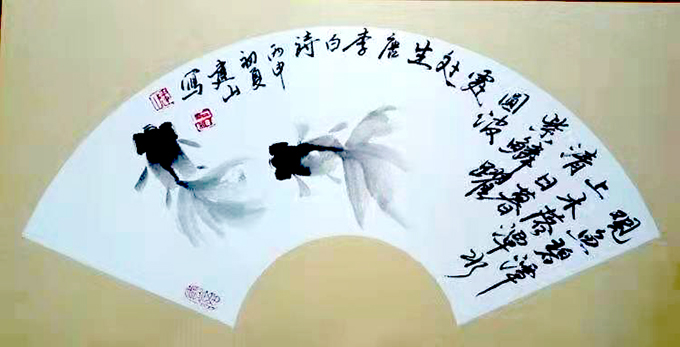 觀魚碧潭
上木落潭水
清日暮
紫鳞躍
圆波
處
处
生
唐
李
白
诗
丙申
初夏
山
寫